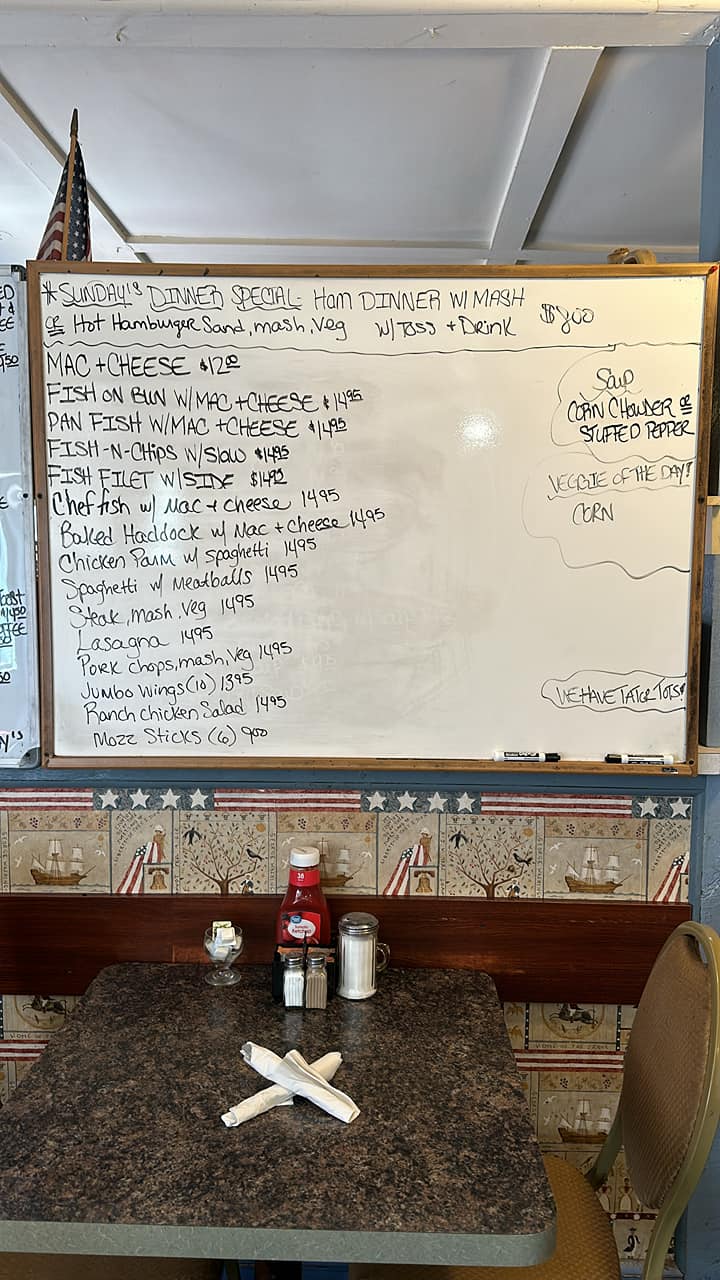 *SUNDAY'S DINNER SPECIAL- HAM DINNER W/ MASH
OR Hot Hamburger Sand, mash, Veg W/ TOSS + DRINK $800
MAC + CHEESE $12.00
FISH ON BUN W/ MAC + CHEESE $14.95
PAN FISH W/ MAC + CHEESE $14.95
FISH-N-CHIPS W/ SLAW $14.95
FISH FILET W/ SIDE $14.95
Chef fish w/ Mac + cheese 1495
Baked Haddock w/ Mac + Cheese 1495
Chicken Parm w/ spaghetti 1495
Spaghetti w/ Meatballs 1495
Steak, mash, veg 1495
Lasagna 1495
Pork chops, mash, veg 1495
Jumbo Wings (10) 1395
Ranch Chicken Salad 1495
Mozz Sticks (6) 900
Soup
CORN CHOWDER OR
STUFFED PEPPER
VEGGIE OF THE DAY!
CORN
WE HAVE TATOR TOTS!
38
Tomato
Ketchup